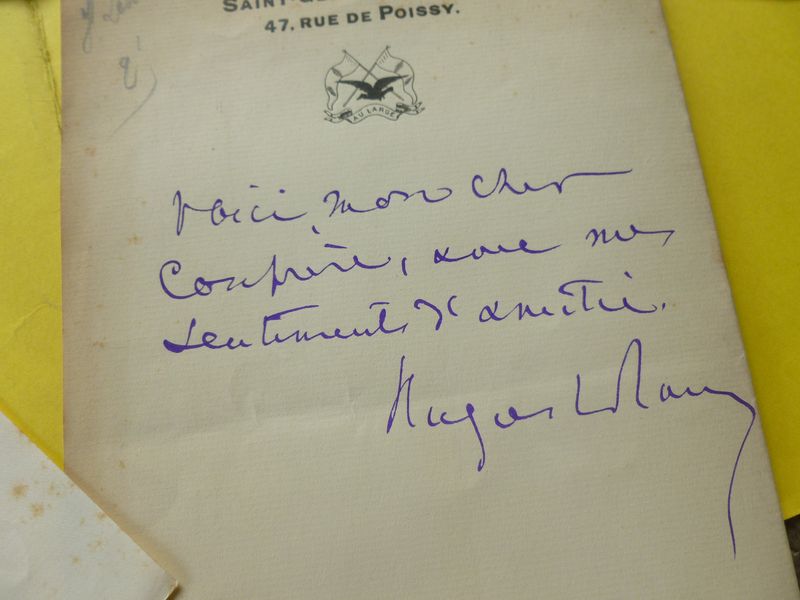 47, RUE DE POISSY.
AU LARGE
Voici, mon cher
Confrère, avec mes
sentiments d'amitié.
Hugues Le Roux